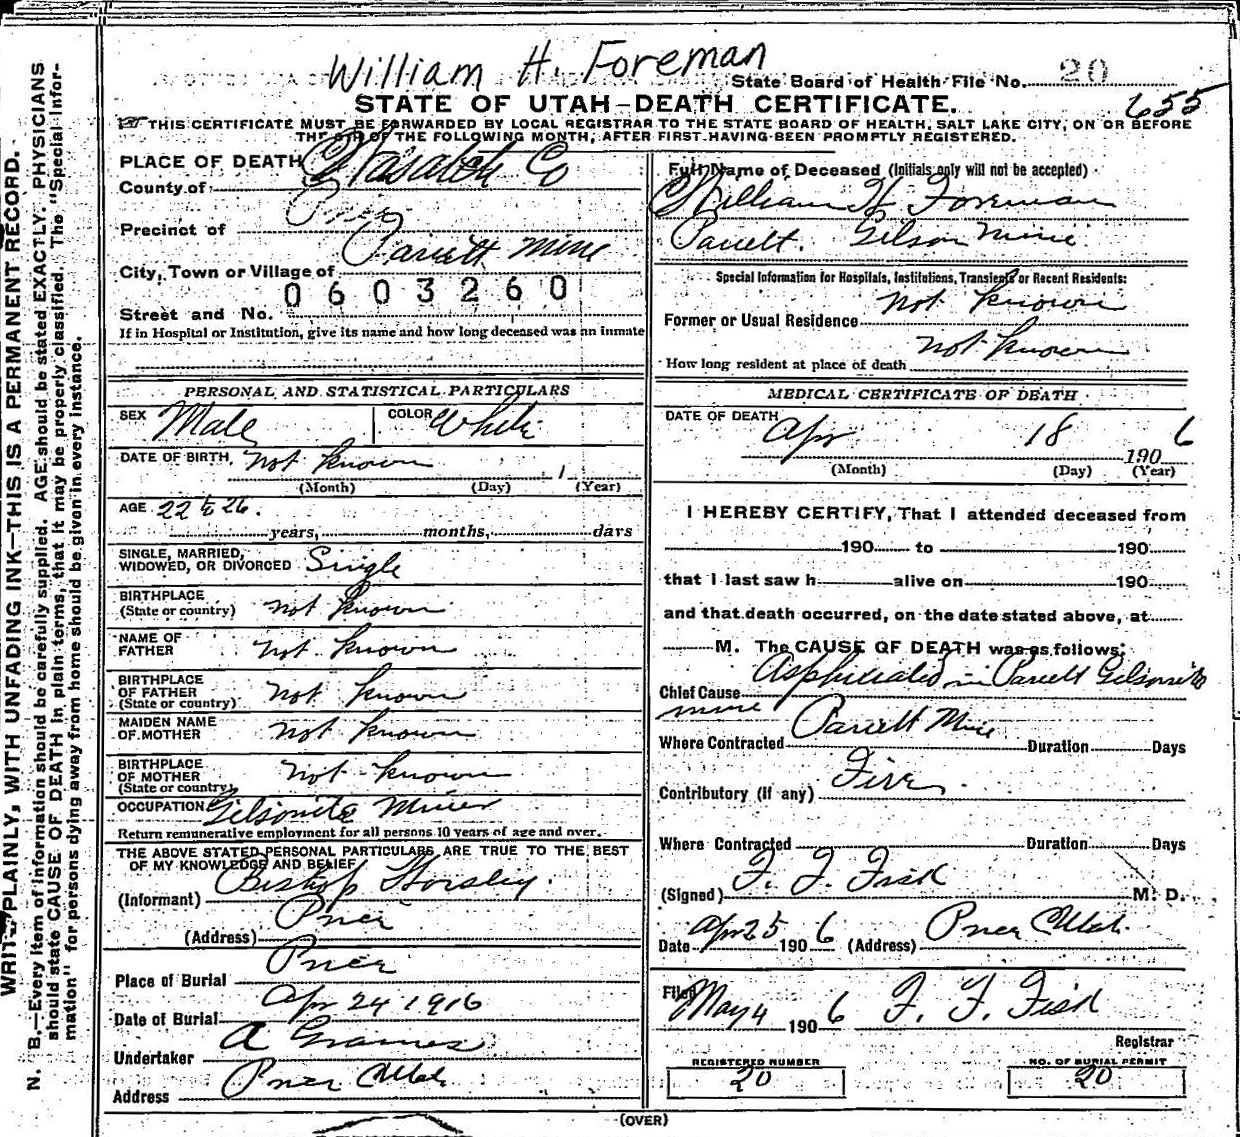 William H. Foreman
State Board of Health File No. 20
STATE OF UTAH—DEATH CERTIFICATE.
655
THIS CERTIFICATE MUST BE FORWARDED BY LOCAL REGISTRAR TO THE STATE BOARD OF HEALTH, SALT LAKE CITY, ON OR BEFORE
THE 5TH OF THE FOLLOWING MONTH, AFTER FIRST HAVING BEEN PROMPTLY REGISTERED.
WRITE PLAINLY, WITH UNFADING INK—THIS IS A PERMANENT RECORD.
N. B.—Every item of information should be carefully supplied. AGE should be stated EXACTLY. PHYSICIANS
should state CAUSE OF DEATH in plain terms, that it may be properly classified. The "Special Infor-
mation" for persons dying away from home should be given in every instance.
PLACE OF DEATH
County of Wasatch Co
Precinct of Price
City, Town or Village of Pariett Mine
0603260
Street and No.
If in Hospital or Institution, give its name and how long deceased was an inmate
PERSONAL AND STATISTICAL PARTICULARS
SEX Male COLOR White
DATE OF BIRTH not known 1
(Month) (Day) (Year)
AGE 22 to 26.
years, months, days
SINGLE, MARRIED,
WIDOWED, OR DIVORCED Single
BIRTHPLACE
(State or country) not known
NAME OF
FATHER not known
BIRTHPLACE
OF FATHER
(State or country) not known
MAIDEN NAME
OF MOTHER not known
BIRTHPLACE
OF MOTHER
(State or country) not known
OCCUPATION Gilsonite Miner
Return remunerative employment for all persons 10 years of age and over.
THE ABOVE STATED PERSONAL PARTICULARS ARE TRUE TO THE BEST
OF MY KNOWLEDGE AND BELIEF
(Informant) Bishop Horsley.
(Address) Price
Place of Burial Price
Date of Burial Apr 24 1916
Undertaker A Grames
Address Price Utah
Full Name of Deceased (Initials only will not be accepted)
William H Foreman
Pariett. Gilson Mine
Special Information for Hospitals, Institutions, Transients or Recent Residents:
Former or Usual Residence not known
How long resident at place of death not known
MEDICAL CERTIFICATE OF DEATH
DATE OF DEATH Apr 18 1906
(Month) (Day) (Year)
I HEREBY CERTIFY, That I attended deceased from
190 to 190
that I last saw h alive on 190
and that death occurred, on the date stated above, at
M. The CAUSE OF DEATH was as follows:
Chief Cause Asphyxiated in Pariett Gilsonite
mine
Where Contracted Pariett Mine Duration Days
Contributory (if any) Fire
Where Contracted Duration Days
(Signed) F. F. Fisk M. D.
Date Apr 25 1906 (Address) Price Utah.
Filed May 4 1906 F. F. Fisk
Registrar
REGISTERED NUMBER NO. OF BURIAL PERMIT
20 20
(OVER)